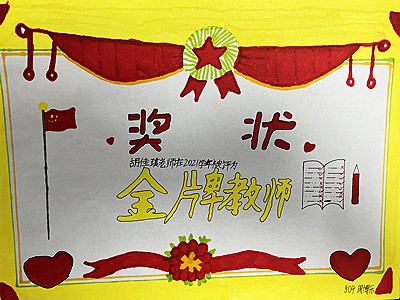 奖状
胡佳琪老师在2021学年被评为
金牌教师